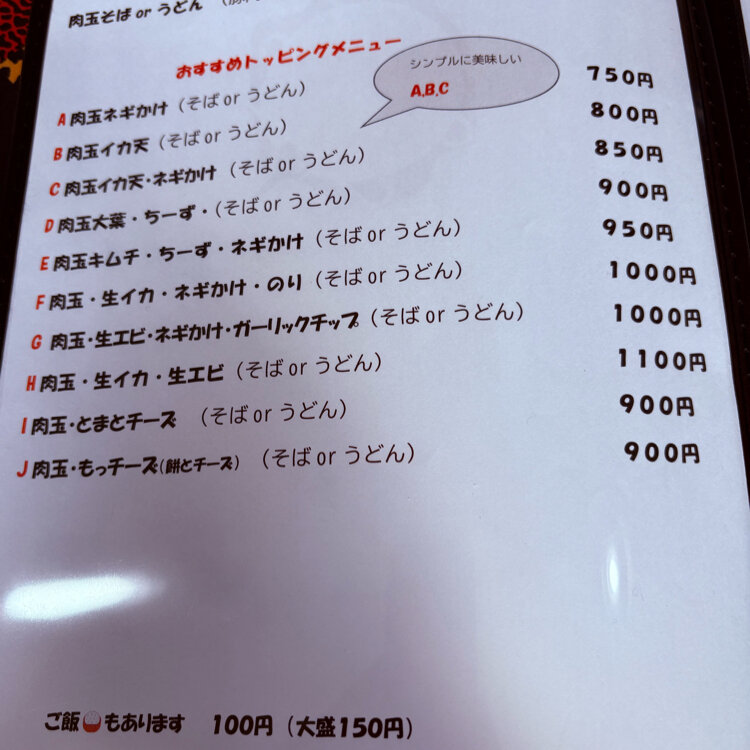 肉玉そば or うどん
おすすめトッピングメニュー
シンプルに美味しい
A,B,C
A 肉玉ネギかけ（そば or うどん） 750円
B 肉玉イカ天（そば or うどん） 800円
C 肉玉イカ天・ネギかけ（そば or うどん） 850円
D 肉玉大葉・ちーず・（そば or うどん） 900円
E 肉玉キムチ・ちーず・ネギかけ（そば or うどん） 950円
F 肉玉・生イカ・ネギかけ・のり（そば or うどん） 1000円
G 肉玉・生エビ・ネギかけ・ガーリックチップ（そば or うどん） 1000円
H 肉玉・生イカ・生エビ（そば or うどん） 1100円
I 肉玉・とまとチーズ （そば or うどん） 900円
J 肉玉・もっチーズ（餅とチーズ） （そば or うどん） 900円
ご飯もあります 100円（大盛150円）